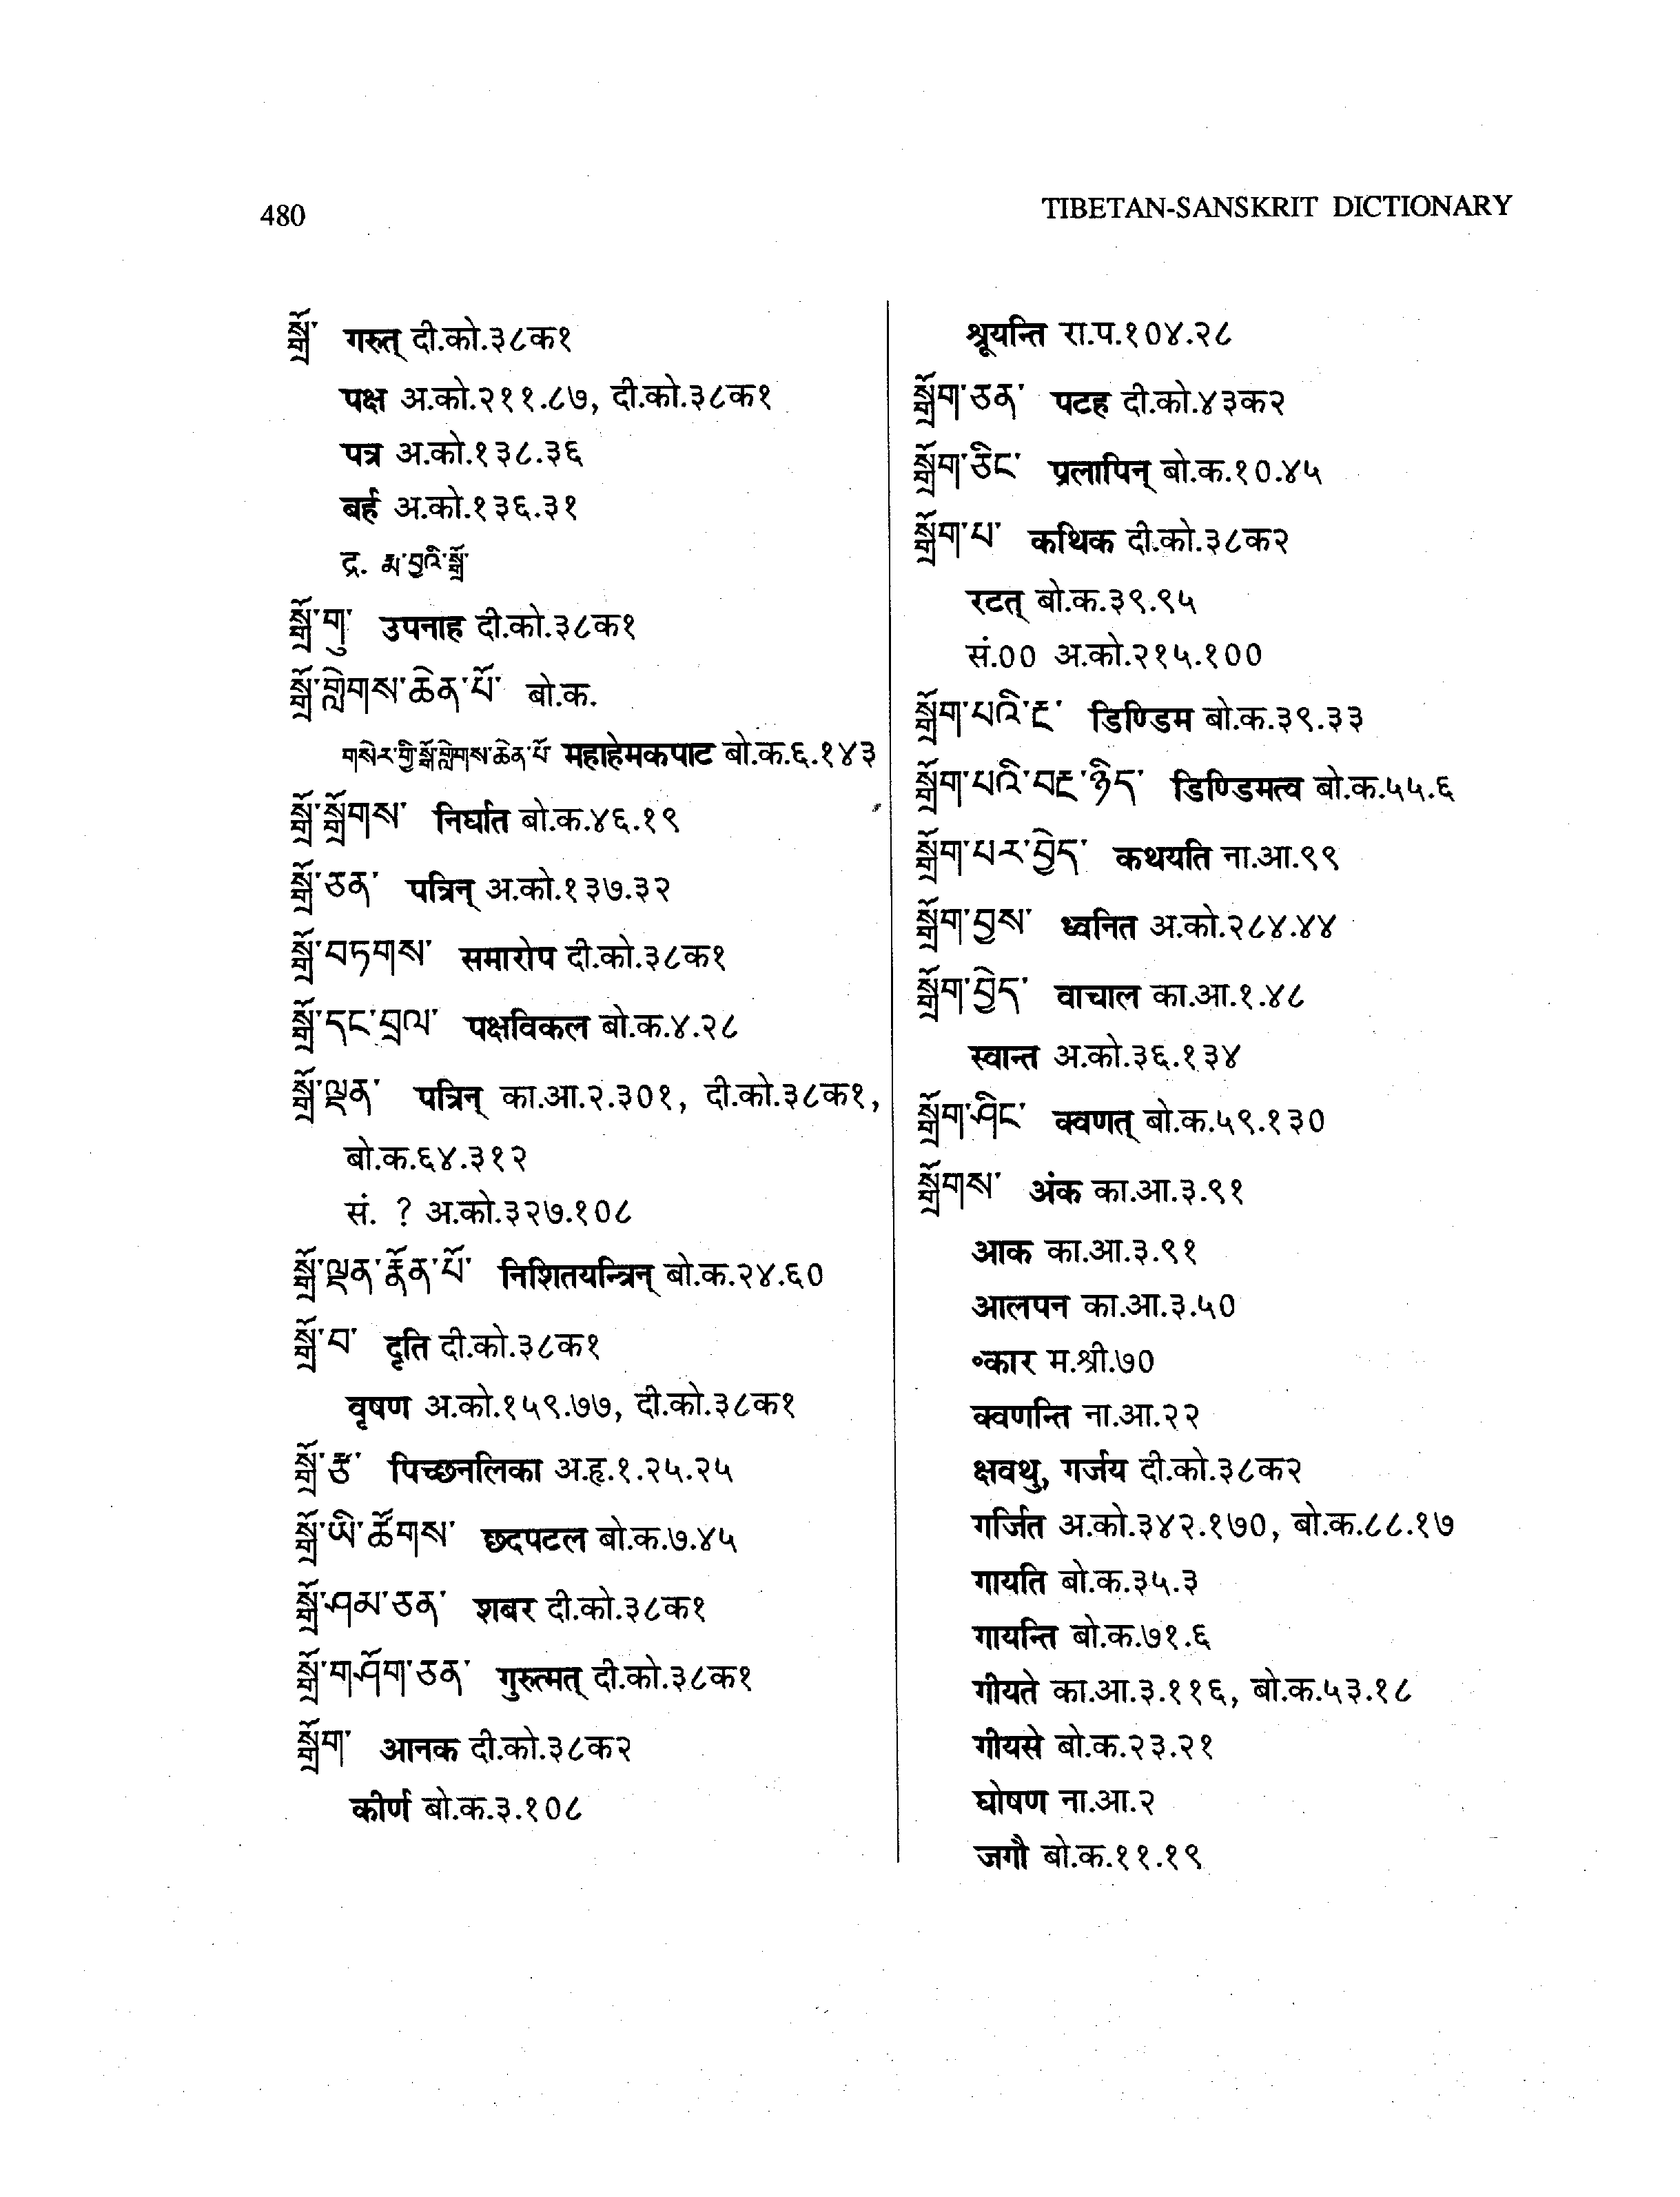 480
TIBETAN-SANSKRIT DICTIONARY
སྒྲོ་ गरुत् दी.को.३८क१
पक्ष अ.को.२११.८७, दी.को.३८क१
पत्र अ.को.१३८.३६
बर्ह अ.को.१३६.३१
द्र. རྨ་བྱའི་སྒྲོ་
སྒྲོ་གུ་ उपनाह दी.को.३८क१
སྒྲོ་གླེགས་ཆེན་པོ་ बो.क.
གསེར་གྱི་སྒྲོ་གླེགས་ཆེན་པོ་ महाहेमकपाट बो.क.६.१४३
སྒྲོ་སྒྲོགས་ निर्घात बो.क.४६.१९
སྒྲོ་ཅན་ पत्रिन् अ.को.१३७.३२
སྒྲོ་བཏགས་ समारोप दी.को.३८क१
སྒྲོ་དང་བྲལ་ पक्षविकल बो.क.४.२८
སྒྲོ་ལྡན་ पत्रिन् का.आ.२.३०१, दी.को.३८क१,
बो.क.६४.३१२
सं. ? अ.को.३२७.१०८
སྒྲོ་ལྡན་རྣོན་པོ་ निशितयन्त्रिन् बो.क.२४.६०
སྒྲོ་བ་ दृति दी.को.३८क१
वृषण अ.को.१५९.७७, दी.को.३८क१
སྒྲོ་རྩ་ पिच्छनलिका अ.हृ.१.२५.२५
སྒྲོ་ཡི་ཚོགས་ छदपटल बो.क.७.४५
སྒྲོ་ཤམ་ཅན་ शबर दी.को.३८क१
སྒྲོ་གཤོག་ཅན་ गुरुत्मत् दी.को.३८क१
སྒྲོག་ आनक दी.को.३८क२
कीर्ण बो.क.३.१०८
श्रूयन्ति रा.प.१०४.२८
སྒྲོག་ཅན་ पटह दी.को.४३क२
སྒྲོག་ཅིང་ प्रलापिन् बो.क.१०.४५
སྒྲོག་པ་ कथिक दी.को.३८क२
रटत् बो.क.३९.९५
सं.०० अ.को.२१५.१००
སྒྲོག་པའི་རྔ་ डिण्डिम बो.क.३९.३३
སྒྲོག་པའི་བརྔ་ཉིད་ डिण्डिमत्व बो.क.५५.६
སྒྲོག་པར་བྱེད་ कथयति ना.आ.९९
སྒྲོག་བྱས་ ध्वनित अ.को.२८४.४४
སྒྲོག་བྱེད་ वाचाल का.आ.१.४८
स्वान्त अ.को.३६.१३४
སྒྲོག་ཤིང་ क्वणत् बो.क.५९.१३०
སྒྲོགས་ अंक का.आ.३.९१
आक का.आ.३.९१
आलपन का.आ.३.५०
॰कार म.श्री.७०
क्वणन्ति ना.आ.२२
क्षवथु, गर्जय दी.को.३८क२
गर्जित अ.को.३४२.१७०, बो.क.८८.१७
गायति बो.क.३५.३
गायन्ति बो.क.७१.६
गीयते का.आ.३.११६, बो.क.५३.१८
गीयसे बो.क.२३.२१
घोषण ना.आ.२
जगौ बो.क.११.१९